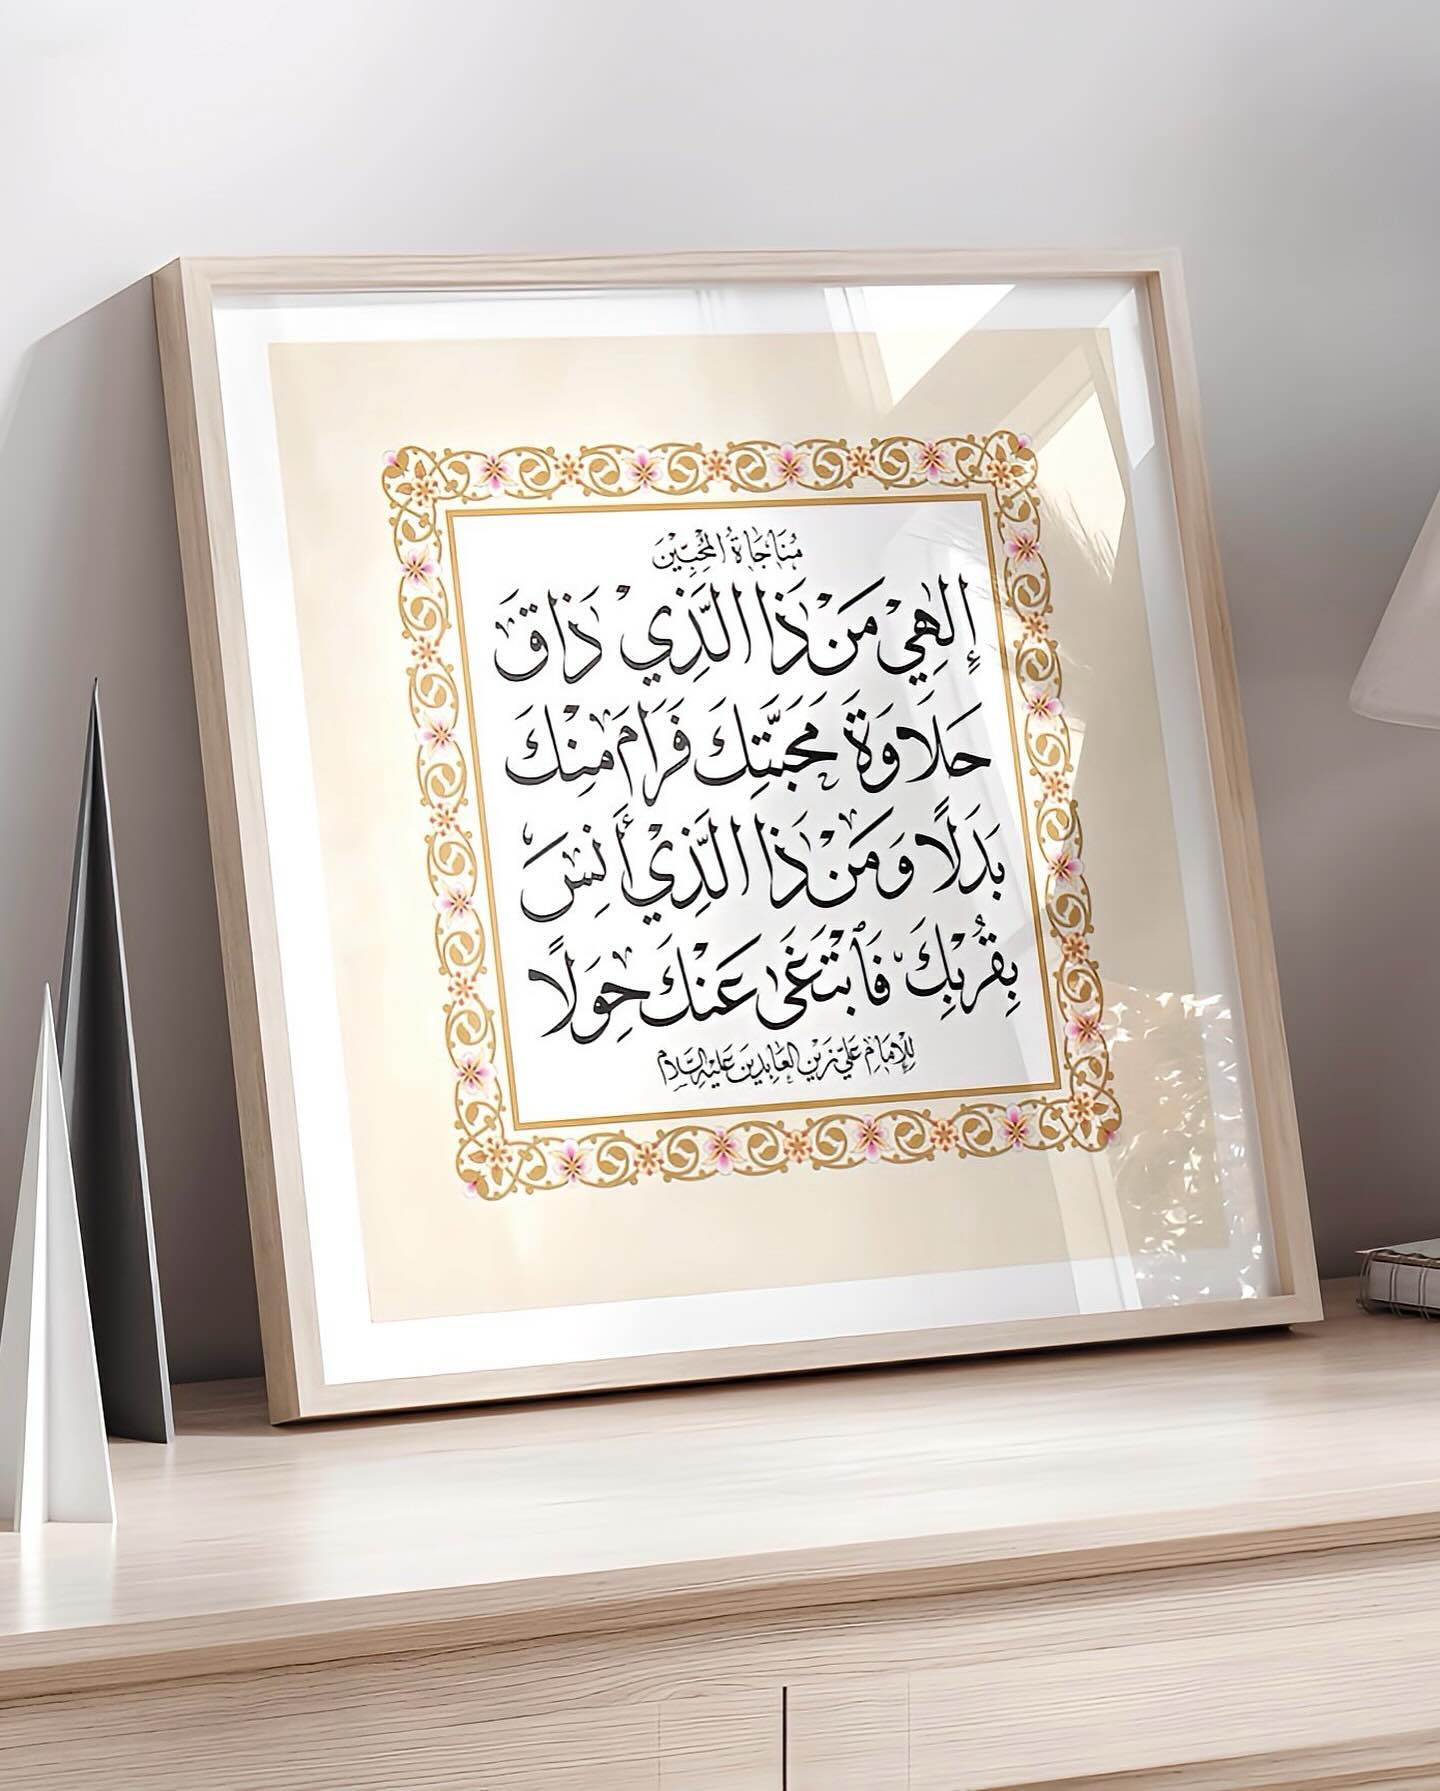 مُنَاجَاةُ الْمُحِبِّيْنَ
إِلَهِيْ مَنْ ذَا الَّذِيْ ذَاقَ
حَلَاوَةَ مَحَبَّتِكَ فَرَامَ مِنْكَ
بَدَلًا وَمَنْ ذَا الَّذِيْ أَنِسَ
بِقُرْبِكَ فَٱبْتَغَى عَنْكَ حِوَلًا
لِلْإِمَامِ عَلِيّ زَيْنِ الْعَابِدِيْنَ عَلَيْهِ السَّلَامُ